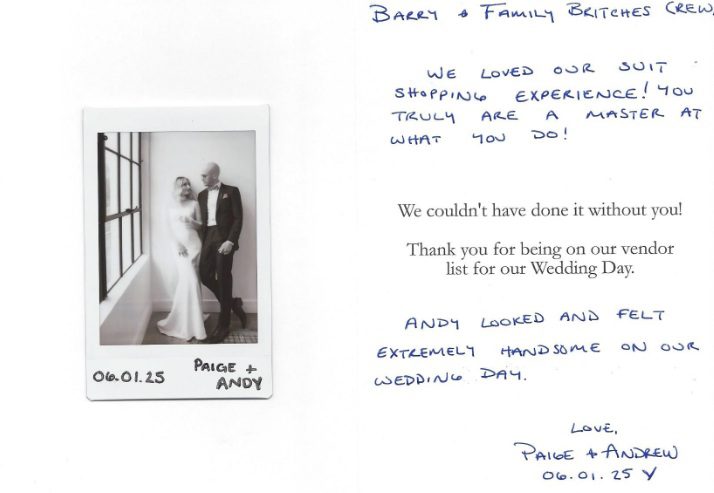 06.01.25
PAIGE +
ANDY
BARRY & FAMILY BRITCHES CREW,
WE LOVED OUR SUIT
SHOPPING EXPERIENCE! YOU
TRULY ARE A MASTER AT
WHAT YOU DO!
We couldn't have done it without you!
Thank you for being on our vendor
list for our Wedding Day.
ANDY LOOKED AND FELT
EXTREMELY HANDSOME ON OUR
WEDDING DAY.
LOVE,
PAIGE + ANDREW
06.01.25